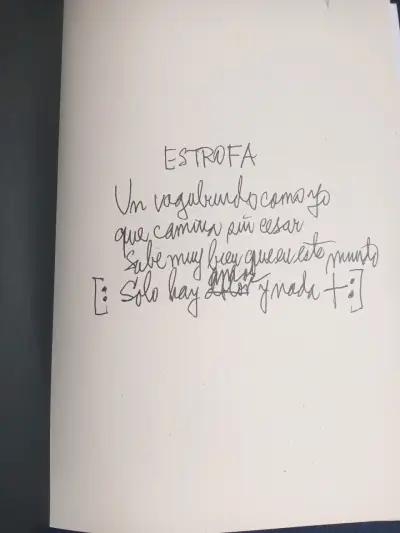 ESTROFA
Un vagabundo como yo
que camina sin cesar
Sabe muy bien que en este mundo
amor
[: Sólo hay y nada + :]